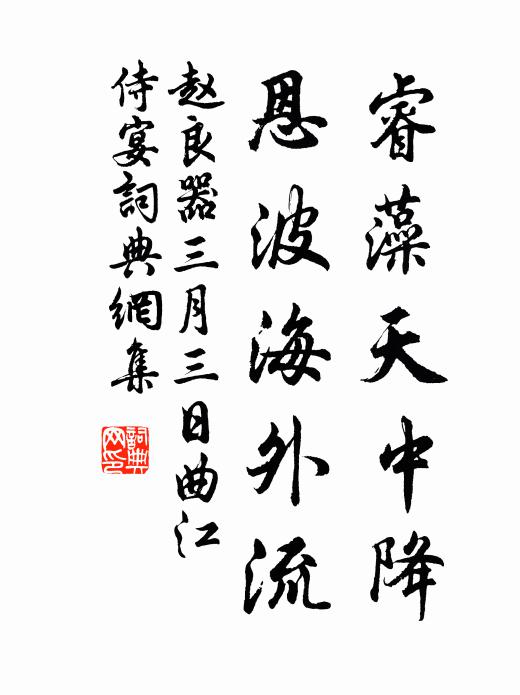 睿藻天中降
恩波海外流
赵良器三月三日曲江
侍宴詞典網集
詞典網印